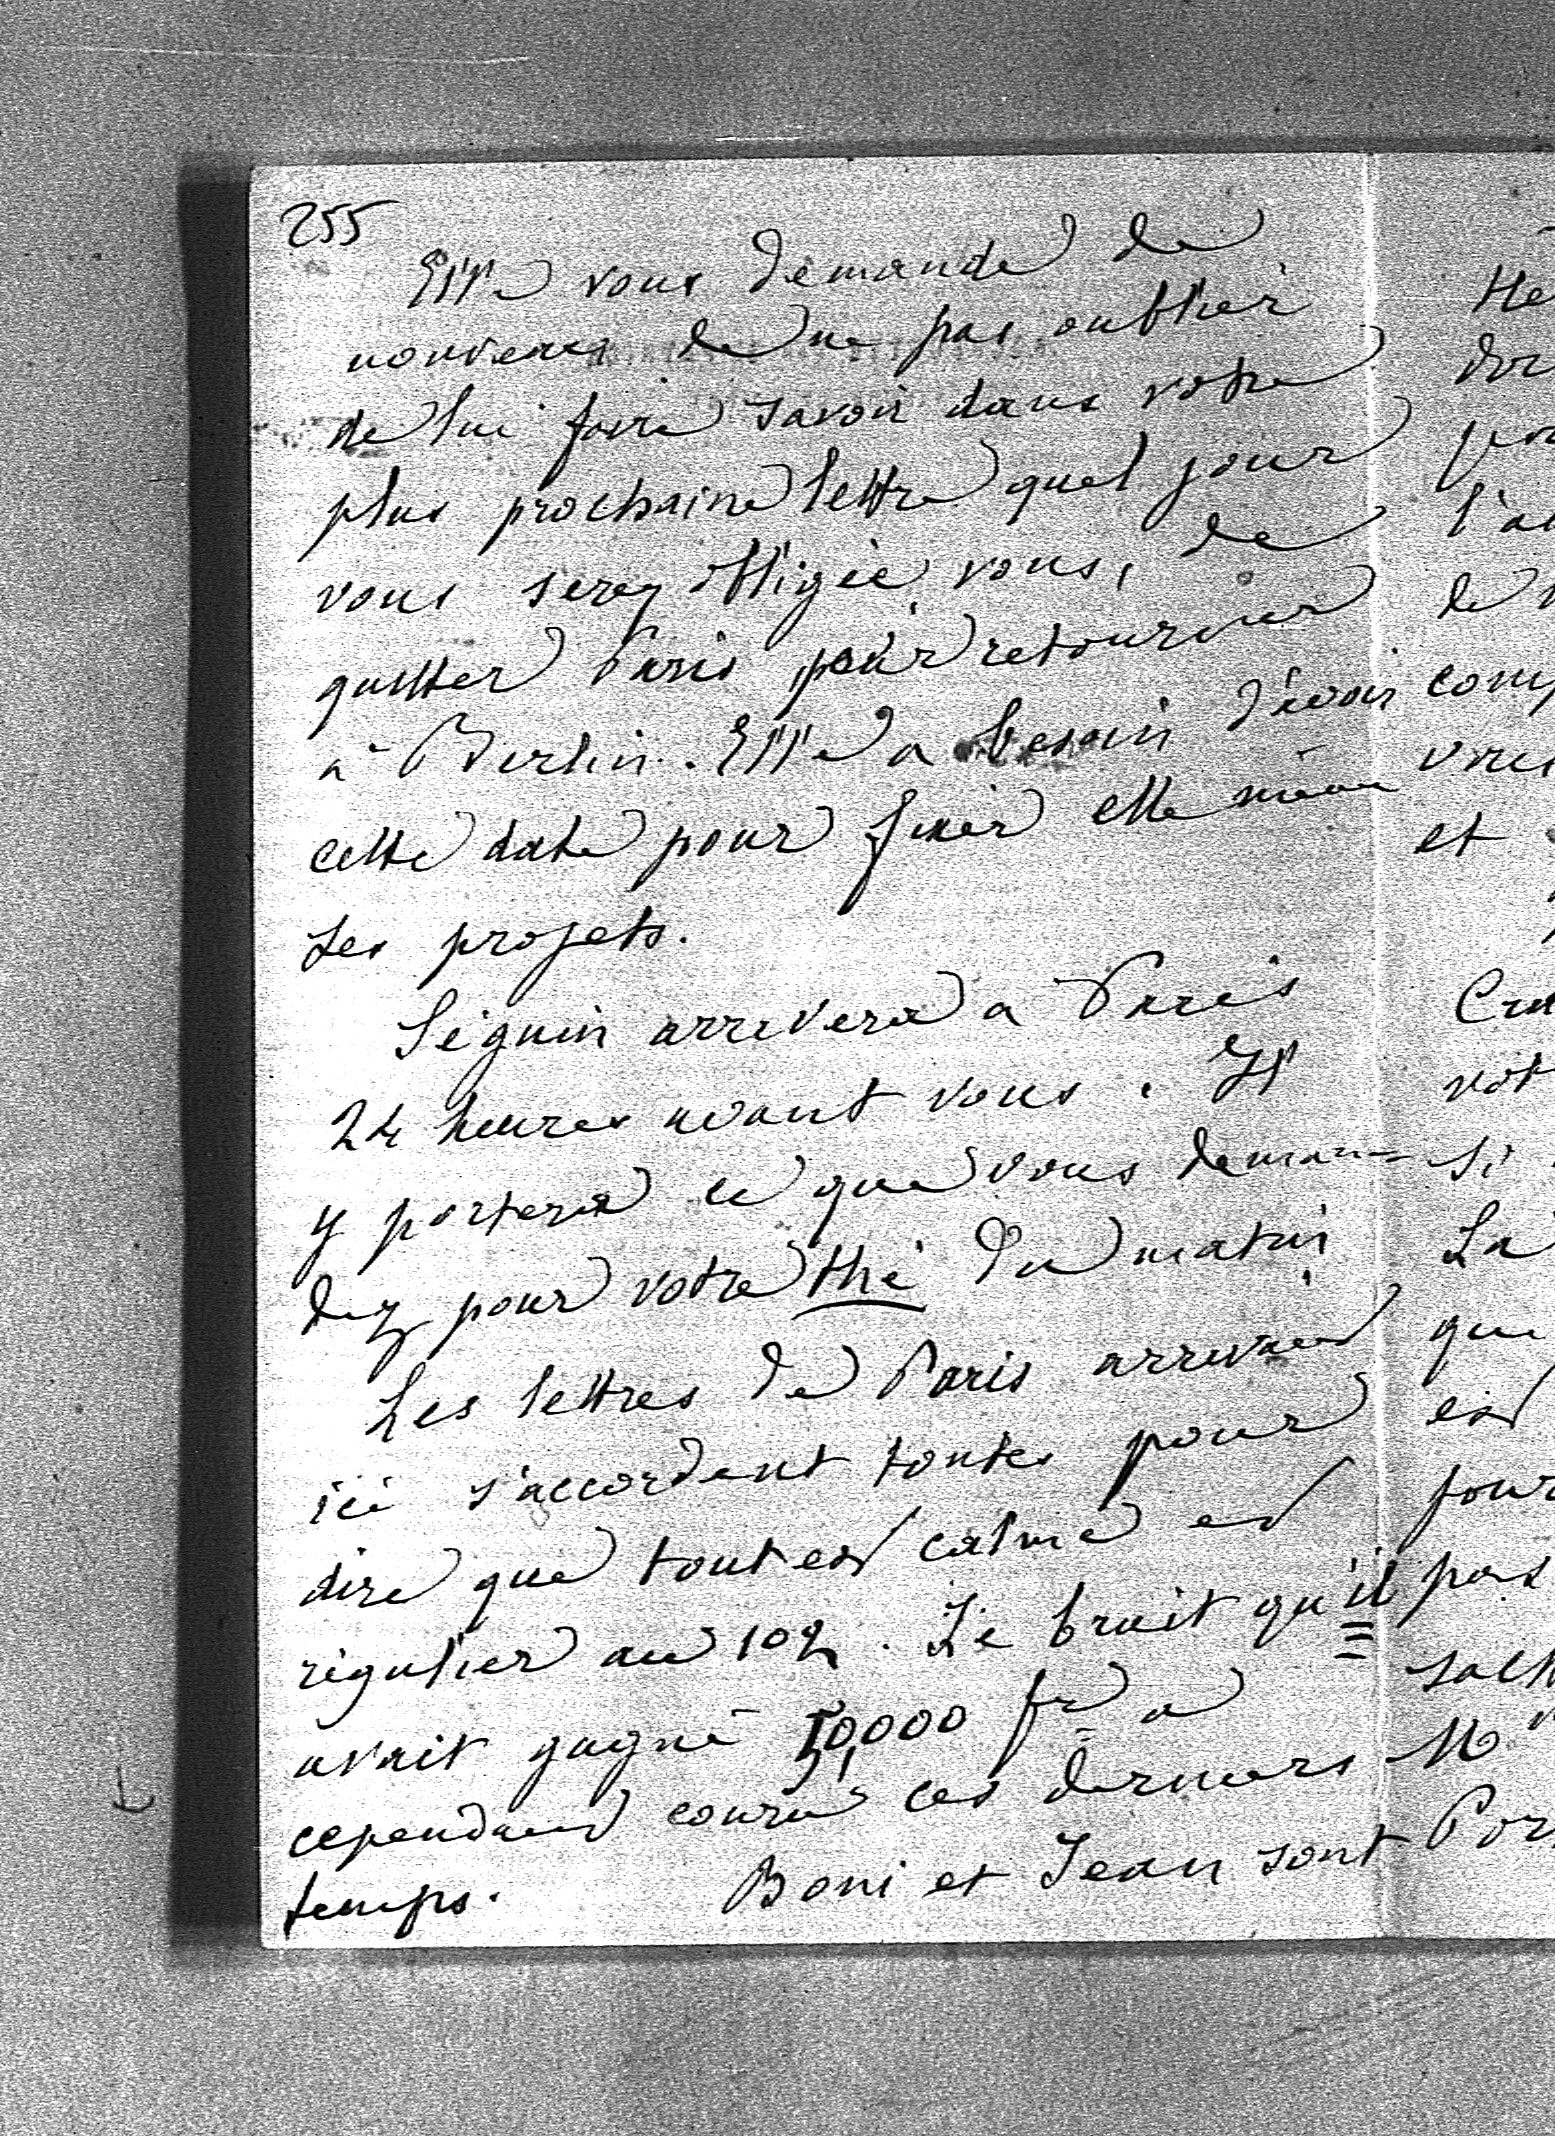 255
Elle vous demande de
nouveau de ne pas oublier
de lui faire savoir dans votre
plus prochaine lettre quel jour
vous serez obligée vous, de
quitter Paris pour retourner
à Berlin. Elle a besoin d'avoir
cette date pour fixer elle même
ses projets.
Séguin arrivera a Paris
24 heures avant vous. Il
y portera ce que vous deman=
dez pour votre thé du matin
Les lettres de Paris arrivant
ici s'accordent toutes pour
dire que tout est calme et
régulier au 102. Le bruit qu'il
avait gagné 50,000 fr a
cependant couru ces derniers
temps. Boni et Jean sont